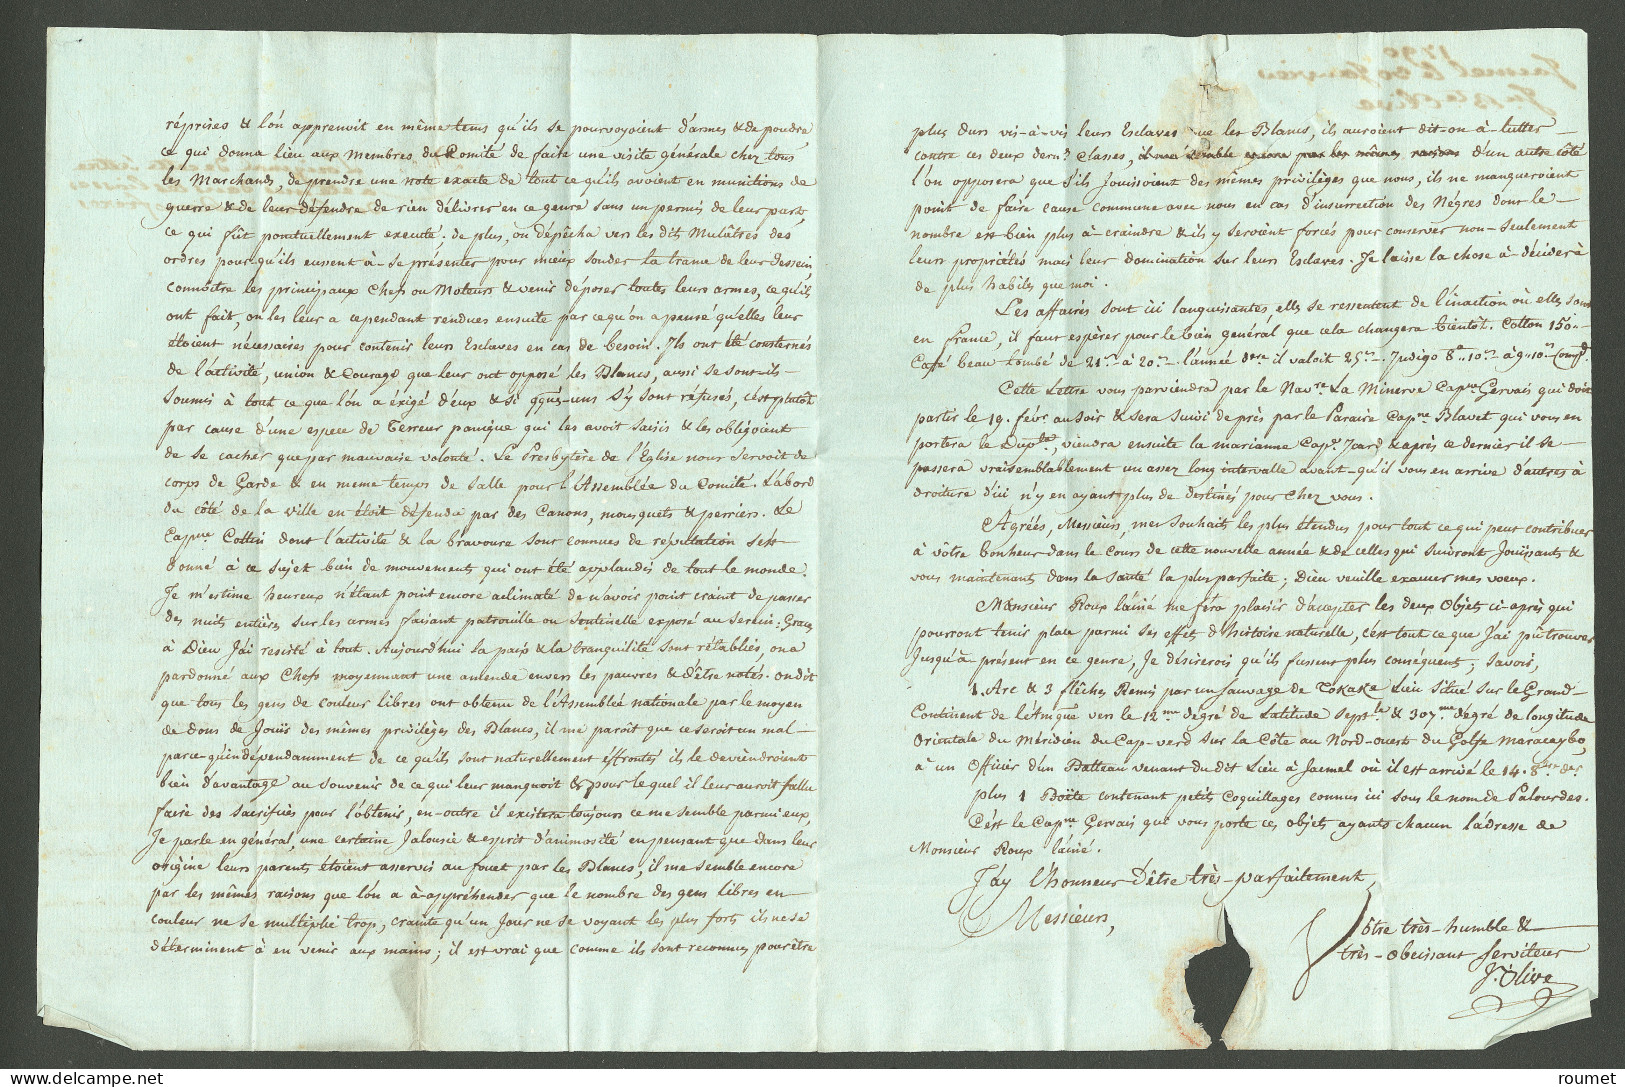 réprises & l'on apprenoit en même tems qu'ils se pourvoyoient d'armes & de poudre
ce qui donna lieu aux Membres du Comité de faire une visite générale chez tous
les Marchands, de prendre une note exacte de tout ce qu'ils avoient en munitions de
guerre & de leur défendre de rien délivrer en ce genre sans un permis de leur part,
ce qui fût ponctuellement executé; de plus, on dépêcha vers les dits Mulâtres des
ordres pour qu'ils eussent à-se présenter pour mieux sonder la trame de leur dessein,
connoître les principaux Chefs ou Moteurs & venir déposer toutes leurs armes, ce qu'ils
ont fait, on les leur a cependant rendues ensuite parce qu'on a pensé qu'elles leur
étoient nécessaires pour contenir leurs Esclaves en cas de besoin. Ils ont été consternés
de l'activité, union & Courage que leur ont opposé les Blancs, aussi se sont-ils
soumis à tout ce que l'on a éxigé d'eux & si qques-uns s'y sont réfusés, c'est plutôt
par cause d'une espece de Terreur panique qui les avoit saisis & les obligeoient
de se cacher que par mauvaise volonté. Le Presbytère de l'Eglise nous servoit de
corps de Garde & en meme temps de salle pour l'Assemblée du Comité. L'abord
du côté de la ville en étoit défendu par des Canons, mousquets & perriers. Le
Capne Cottin dont l'activité & la bravoure sont connues de reputation s'est
donné à ce sujet bien de mouvements qui ont été applaudis de tout le monde.
Je m'estime heureux n'étant point encore aclimaté de n'avoir point craint de passer
des nuits entières sur les armes faisant patrouille ou sentinelle exposé au serein: Graces
à Dieu j'ai resisté à tout. Aujourd'hui la paix & la tranquilité sont rétablies, on a
pardonné aux Chefs moyennant une amende envers les pauvres & d'être notés. on dit
que tous les gens de couleur libres ont obtenu de l'Assemblée nationale par le moyen
de dons de Jouïr des mêmes privilèges des Blancs, il me paroît que ce seroit un mal
parce-qu'indépendamment de ce qu'ils sont naturellement effrontés ils le deviendroient
bien d'avantage au souvenir de ce qui leur manquoit & pour lequel il leur auroit fallu
faire des sacrifices pour l'obtenir, en-outre il existera toujours ce me semble parmi eux,
Je parle en général, une certaine Jalousie & esprit d'animosité en pensant que dans leur
origine leurs parents étoient asservis au fouet par les Blancs, il me semble encore
par les mêmes raisons que l'on a à-appréhender que le nombre des gens libres en
couleur ne se multiplie trop, crainte qu'un Jour ne se voyant les plus forts ils ne se
déterminent à en venir aux mains; il est vrai que comme ils sont reconnus pour être
plus durs vis-à-vis leurs Esclaves que les Blancs, ils auroient dit-on à-lutter
contre ces deux derns Classes, il me semble encore par les mêmes raisons d'un autre côté
l'on opposera que s'ils Jouissoient des mêmes privilèges que nous, ils ne manqueroient
point de faire cause commune avec nous en cas d'insurrection des Négres dont le
nombre est bien plus à-craindre & ils y seroient forcés pour conserver non-seulement
leurs propriétés mais leur domination sur leurs Esclaves. Je laisse la chose à-décider à
de plus habiles que moi.
Les affaires sont ici languissantes, elles se ressentent de l'inaction où elles sont
en France, il faut espérer pour le bien général que cela changera bientôt. Cotton 150"
Café beau tombé de 21s à 20s l'année dere il valoit 25s Indigo 8" 10s à 9" 10s
Cette Lettre vous parviendra par le Navre La Minerve Capne Gervais qui doit
partir le 19. févr au soir & sera suivi de près par le Paraire Capne Blavet qui vous en
portera le Duplta, viendra ensuite la marianne Capne Icard & après ce dernier il se
passera vraisemblablement un assez long intervalle avant-qu'il vous en arrive d'autres à
droiture d'ici n'y en ayant plus de destinés pour chez vous.
Agréés, Messieurs, mes souhaits les plus étendus pour tout ce qui peut contribuer
à vôtre bonheur dans le cours de cette nouvelle année & de celles qui suivront Jouïssants &
vous maintenants dans la santé la plus parfaite; Dieu veuille exaucer mes voeux.
Monsieur Roux l'ainé me fera plaisir d'accepter les deux Objets ci-après qui
pourront tenir place parmi ses effets d'histoire naturelle, c'est tout ce que J'ai pû trouver
Jusqu'à-présent en ce genre, Je désirerois qu'ils fussent plus conséquent; savoir,
1. Arc & 3 flêches Remis par un sauvage de Tokake Lieu situé sur le Grand
Continent de l'Amérique vers le 12me dégré de Latitude septle & 307me dégré de longitude
Orientale du Méridien du Cap-verd sur la Côte au Nord-ouest du Golfe Maracaybo,
à un Officier d'un Batteau venant du dit Lieu à Jacmel où il est arrivé le 14. 8bre der
plus 1 Boëte contenant petits Coquillages connus ici sous le nom de Palourdes.
C'est le Capne Gervais qui vous porte ces objets ayants chacun l'adresse de
Monsieur Roux l'ainé.
J'ay l'honneur d'être très-parfaitement
Messieurs,
Vôtre très-humble &
très-obeissant Serviteur
Jn Olive
roumet